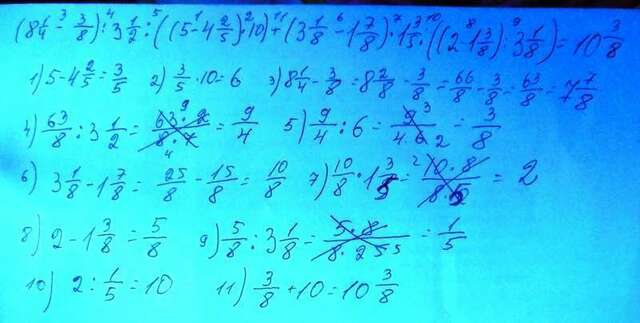 (8 1/4 - 3/8) : 3 1/2 : ((5 - 4 2/5) · 10) + (3 1/8 - 1 7/8) · 1 3/5 : ((2 - 1 3/8) : 3 1/8) = 10 3/8
1) 5 - 4 2/5 = 3/5 2) 3/5 · 10 = 6 3) 8 1/4 - 3/8 = 8 2/8 - 3/8 = 66/8 - 3/8 = 63/8 = 7 7/8
4) 63/8 : 3 1/2 = 63 · 2/8 · 7 = 9/4 5) 9/4 : 6 = 9/4 · 6 = 3/8
6) 3 1/8 - 1 7/8 = 25/8 - 15/8 = 10/8 7) 10/8 · 1 3/5 = 10 · 8/8 · 5 = 2
8) 2 - 1 3/8 = 5/8 9) 5/8 : 3 1/8 = 5 · 8/8 · 25 = 1/5
10) 2 : 1/5 = 10 11) 3/8 + 10 = 10 3/8